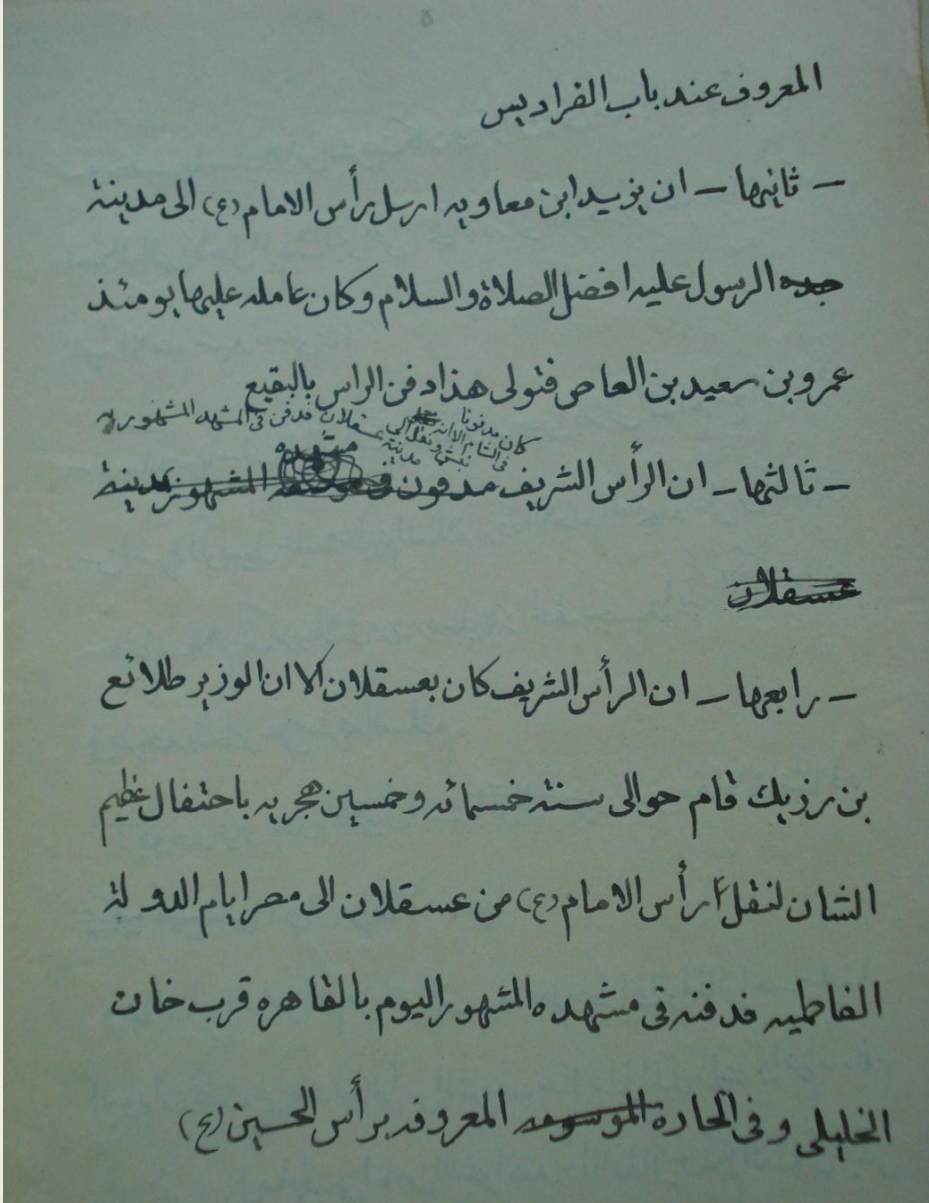 ٥
المعروف عند باب الفراديس
— ثانيها — ان يزيد ابن معاويه ارسل برأس الامام (ع) الى مدينة
جده الرسول عليه افضل الصلاة والسلام وكان عامله عليها يومئذ
عمرو بن سعيد بن العاص فتولى هذا دفن الراس بالبقيع
كان مدفونا فى الشام الا انه نبش ونقل الى مدينة عسقلان فدفن فى المشهد المشهور به
— ثالثها — ان الرأس الشريف مدفون فى مشهده المشهور بمدينة
عسقلان
— رابعها — ان الرأس الشريف كان بعسقلان الا ان الوزير طلائع
بن رزيك قام حوالى سنة خمسمائه وخمسين هجريه باحتفال عظيم
الشان لنقل رأس الامام (ع) من عسقلان الى مصر ايام الدولة
الفاطميه فدفنه فى مشهده المشهور اليوم بالقاهره قرب خان
الخليلى وفى الحاره الموسومه المعروفه برأس الحسين (ع)